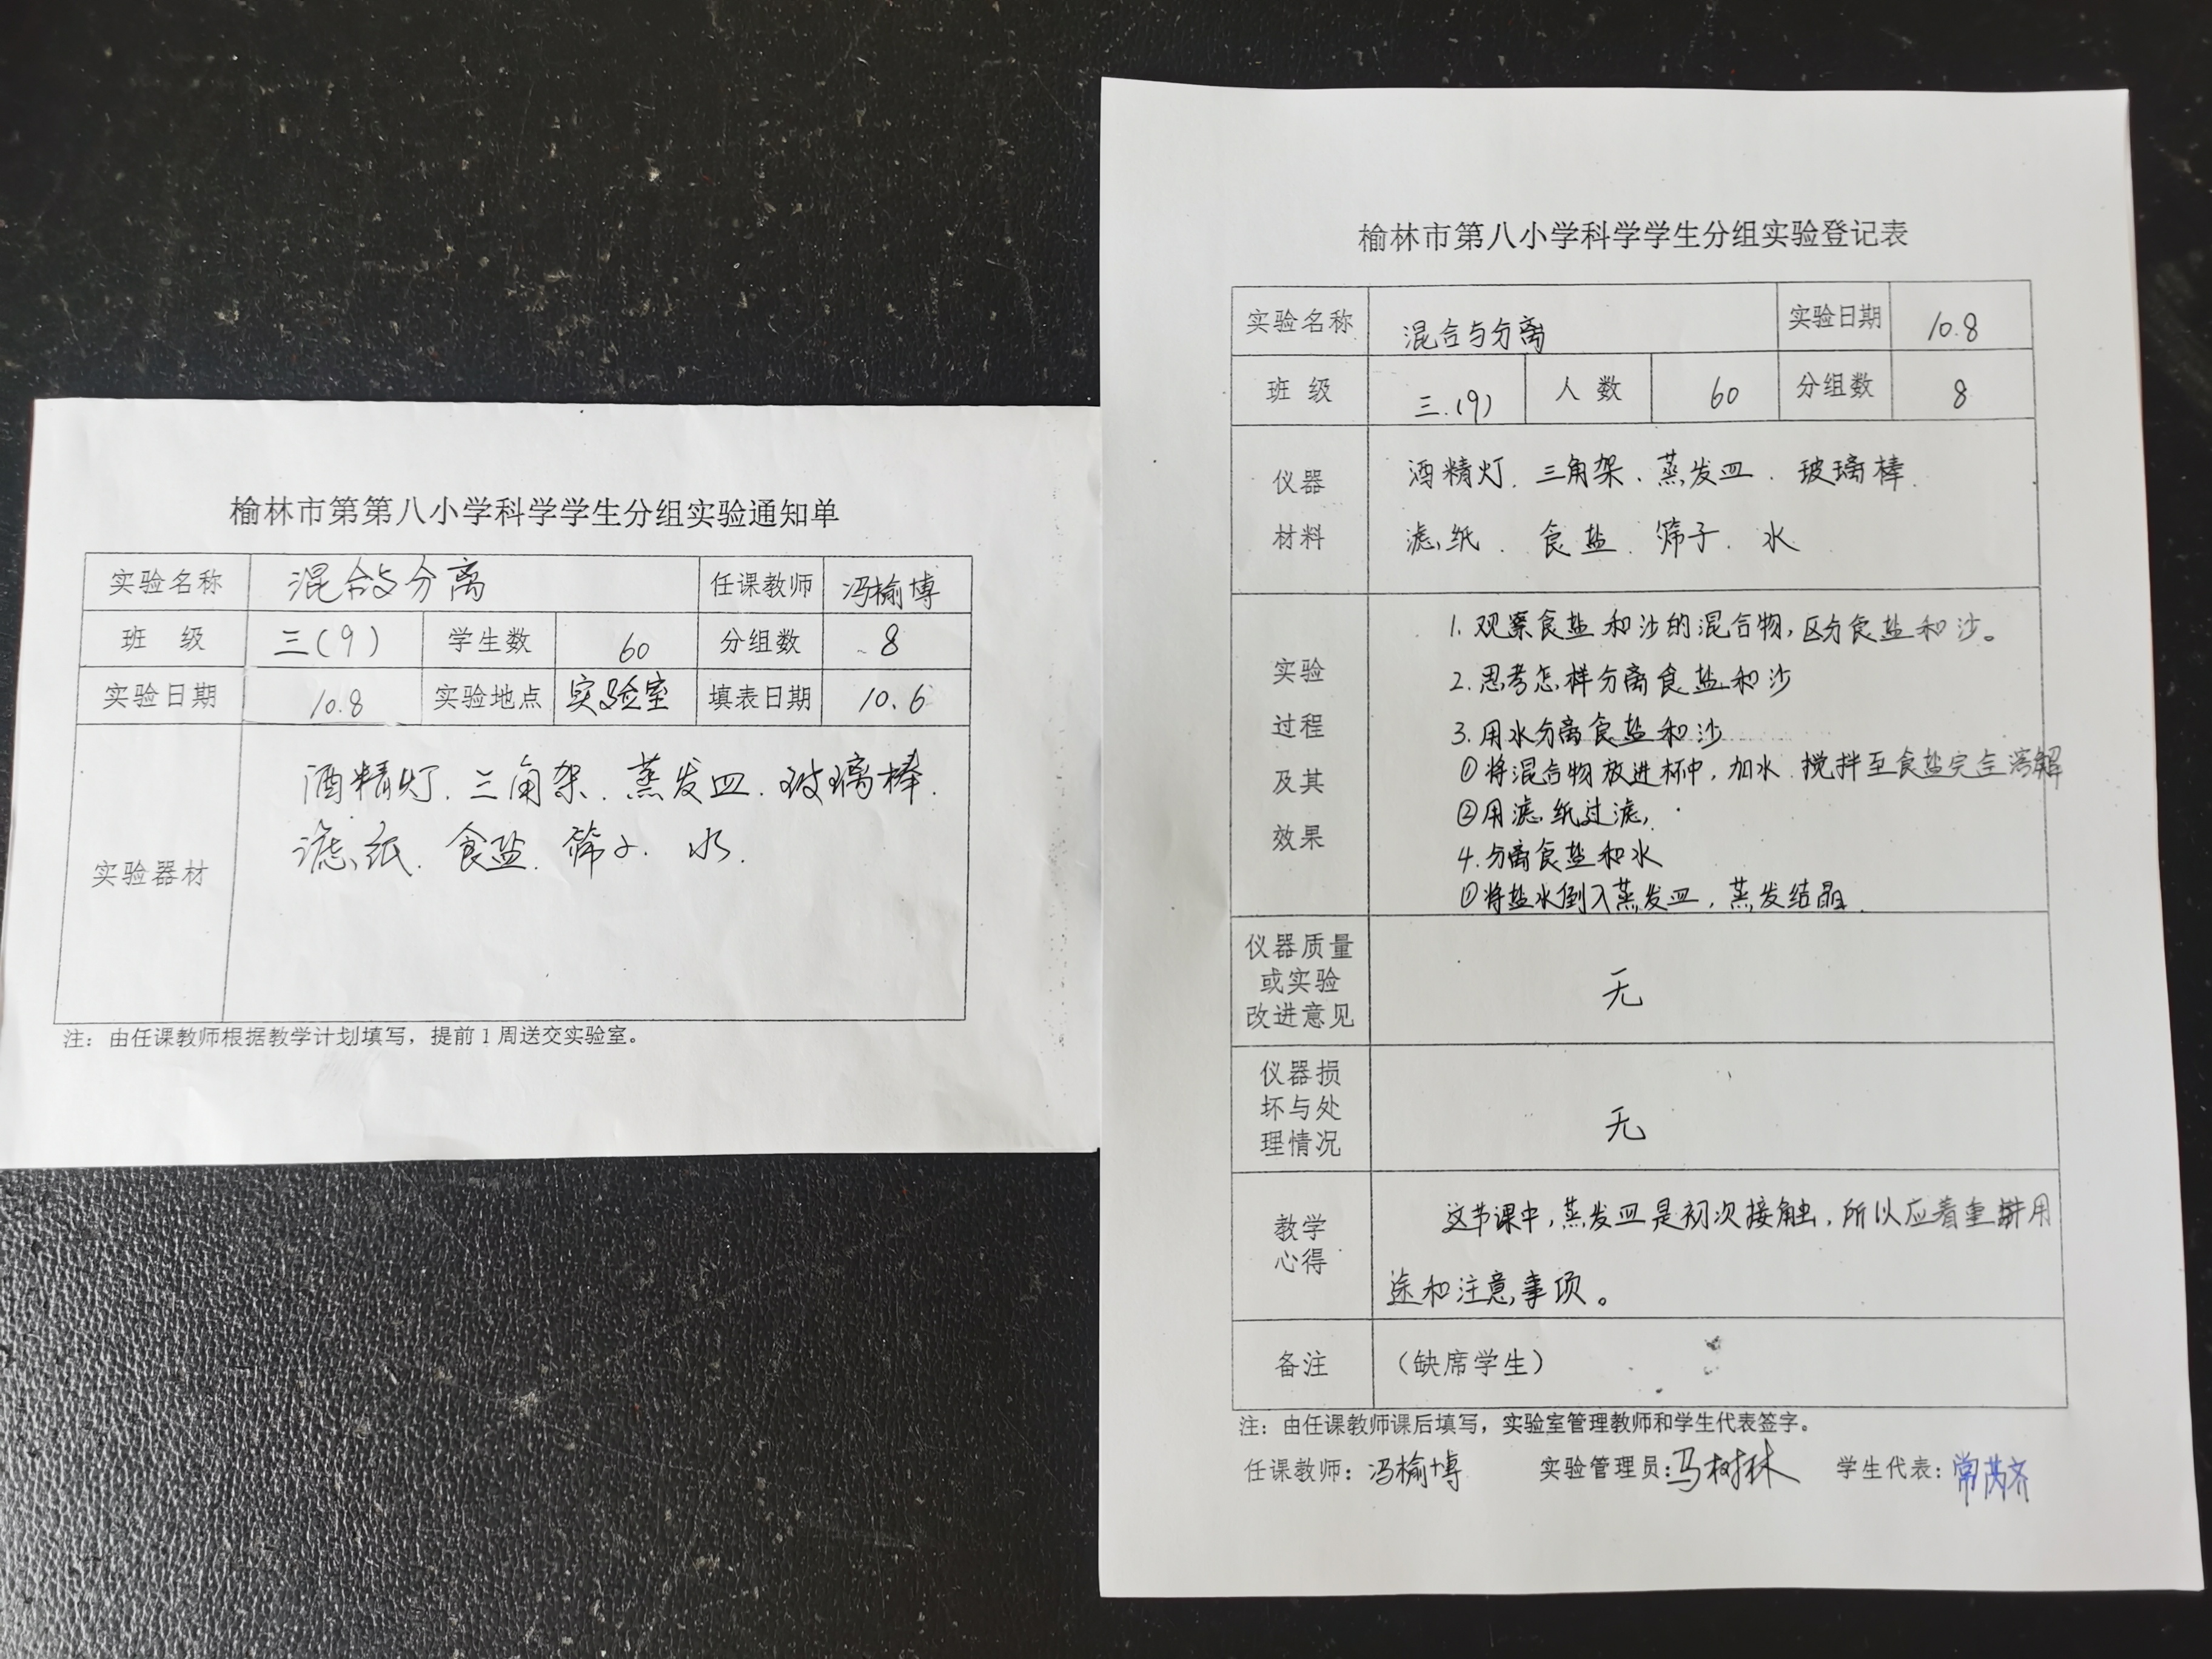 榆林市第第八小学科学学生分组实验通知单
实验名称 混合与分离 任课教师 冯榆博
班 级 三(9) 学生数 60 分组数 8
实验日期 10.8 实验地点 实验室 填表日期 10.6
实验器材
酒精灯.三角架.蒸发皿.玻璃棒.
滤纸.食盐.筛子.水.
注：由任课教师根据教学计划填写，提前1周送交实验室。
榆林市第八小学科学学生分组实验登记表
实验名称 混合与分离 实验日期 10.8
班 级 三.(9) 人 数 60 分组数 8
仪器
材料
酒精灯.三角架.蒸发皿.玻璃棒.
滤纸.食盐.筛子.水
实验
过程
及其
效果
1.观察食盐和沙的混合物,区分食盐和沙。
2.思考怎样分离食盐和沙
3.用水分离食盐和沙
①将混合物放进杯中,加水.搅拌至食盐完全溶解
②用滤纸过滤,
4.分离食盐和水
①将盐水倒入蒸发皿,蒸发结晶.
仪器质量
或实验
改进意见
无
仪器损
坏与处
理情况
无
教学
心得
这节课中,蒸发皿是初次接触,所以应着重讲用
途和注意事项。
备注 （缺席学生）
注：由任课教师课后填写，实验室管理教师和学生代表签字。
任课教师：冯榆博 实验管理员：马树林 学生代表：常